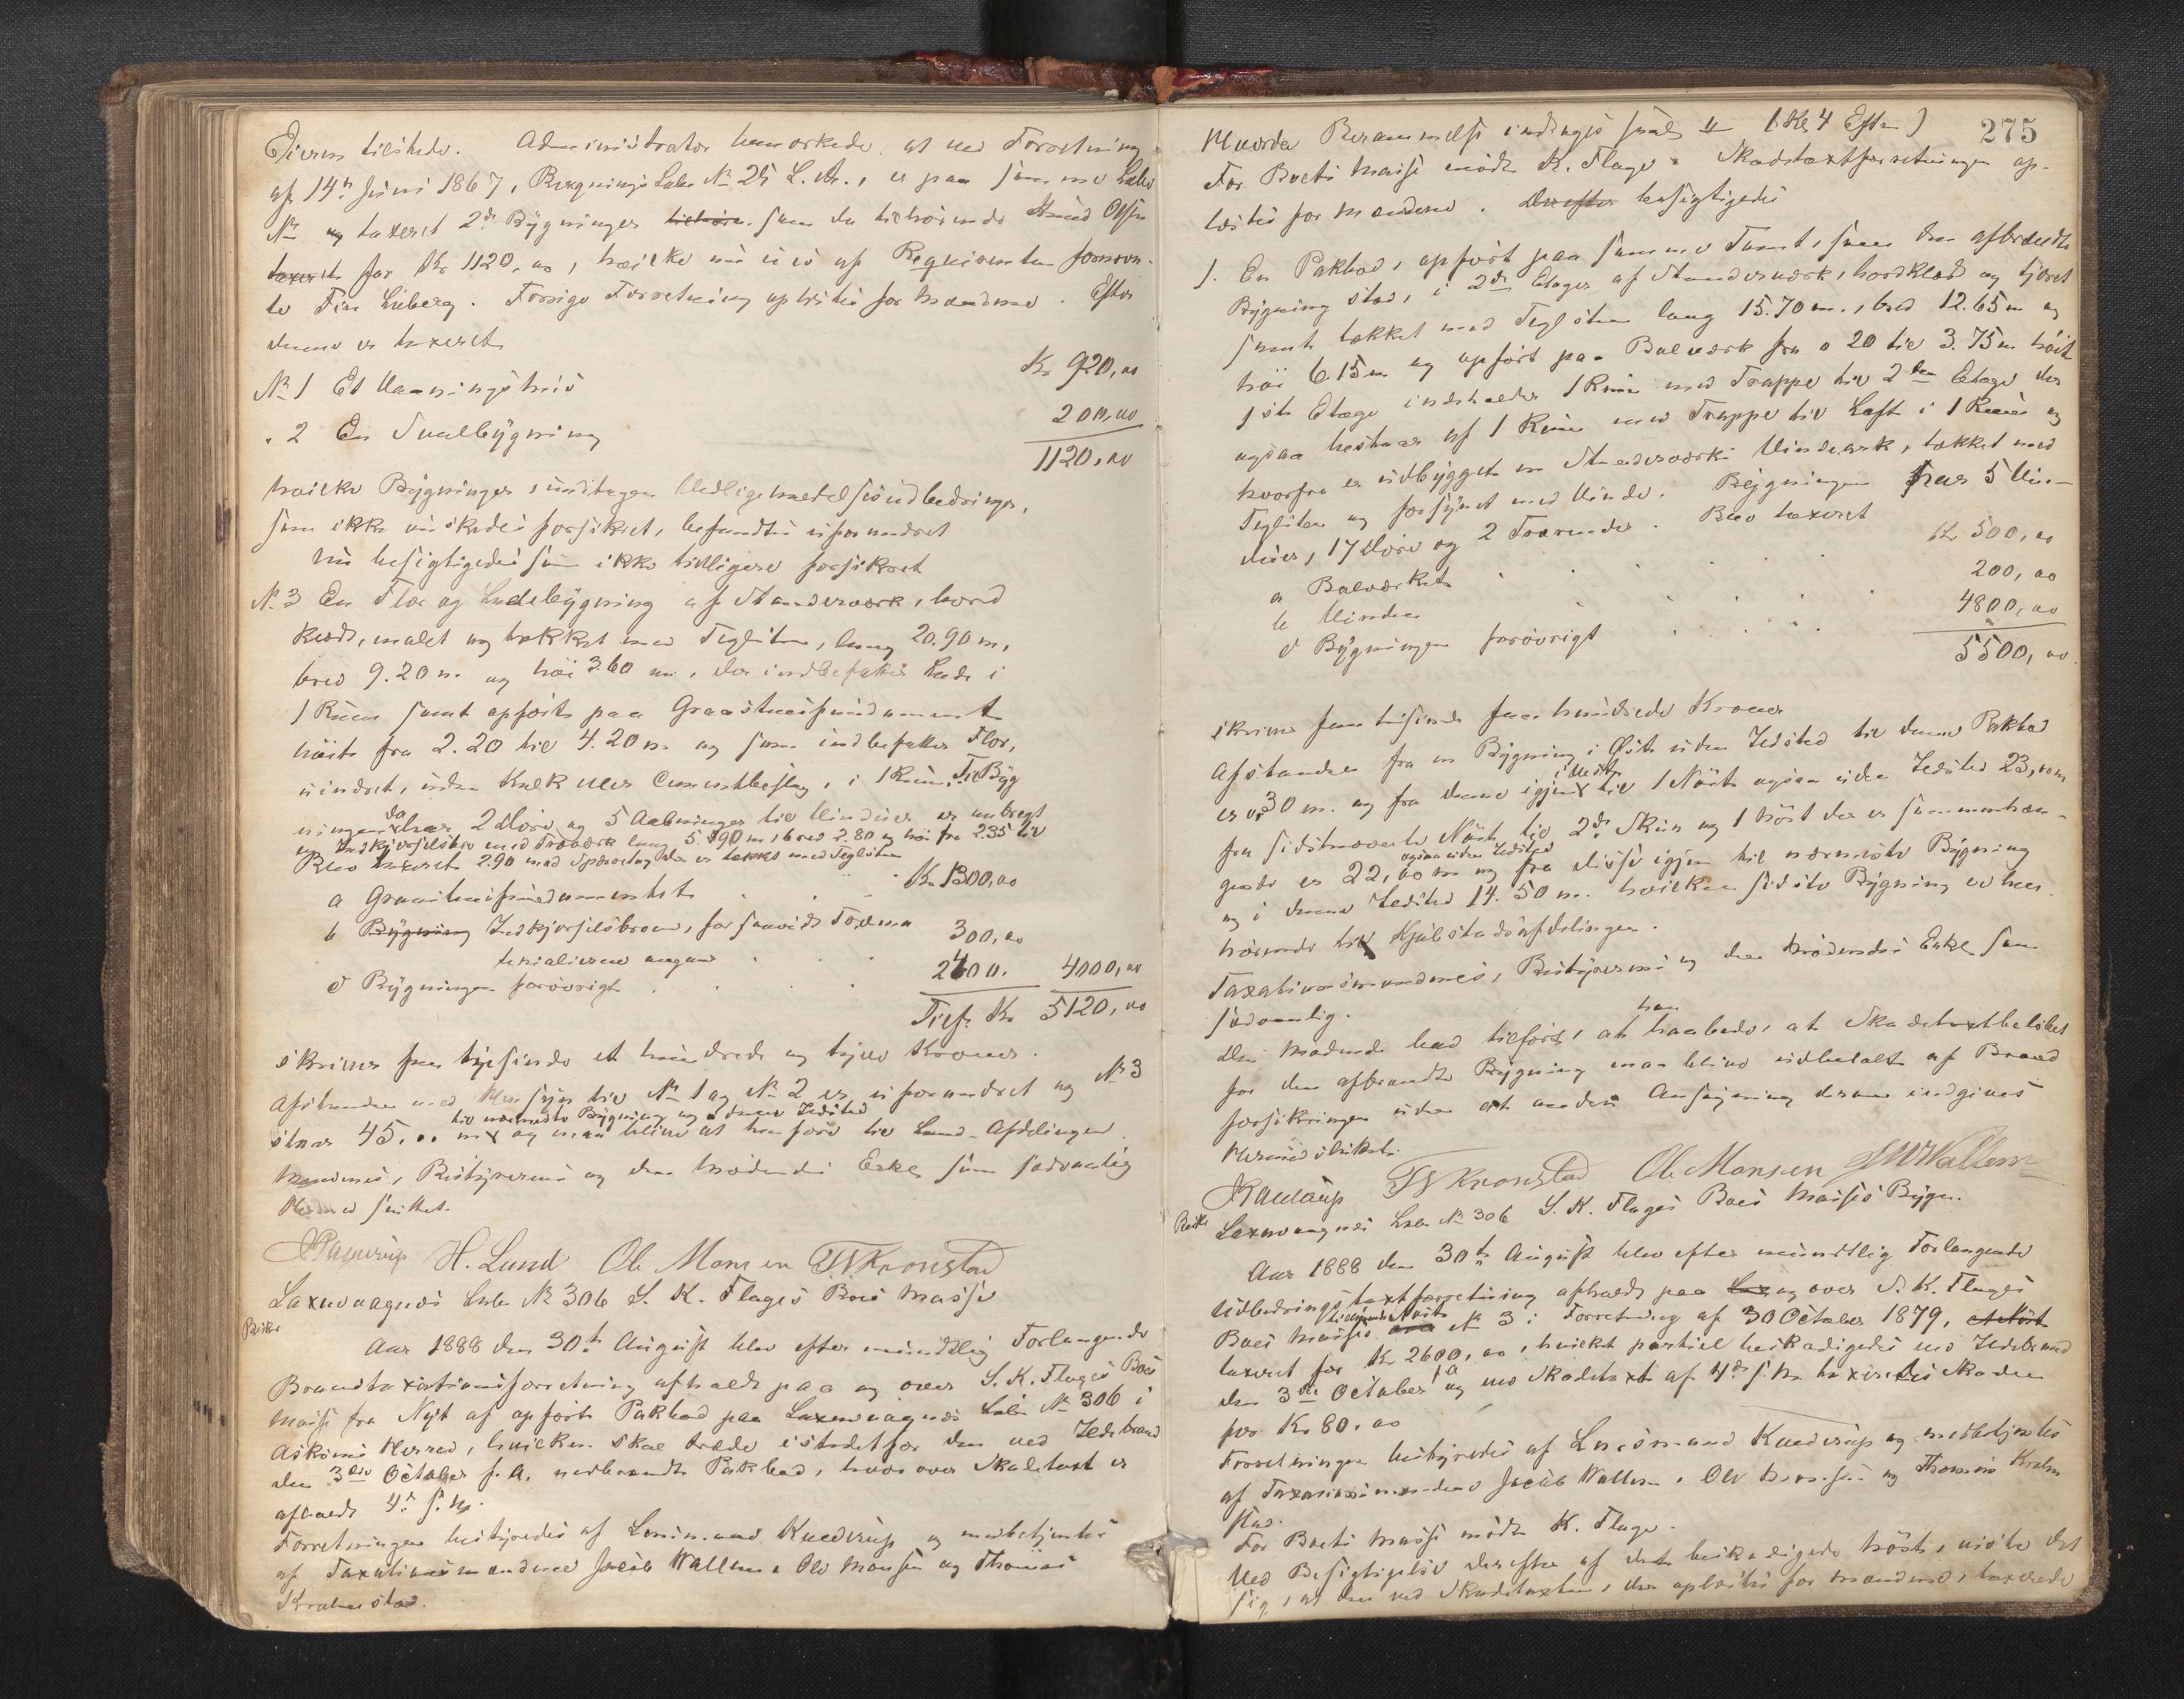 Eieren tilstede. Administrator bemærkede, at ved Forretning
af 14de Juni 1867, Bygnings Lab. № 25 L. A., er paa samme Labr
№ taxeret 2de Bygninger som da tilhørende Knud Olsen
for Kr 1120,00, hvilke nu eies af Reqvirenten
Finn Liberg. Forrige Forretning oplæstes for Mændene. Efter
denne er taxeret
№ 1 Et Vaaningshuus Kr 920,00
" 2 En Svalbygning 200,00
1120,00
hvilke Bygninger, undtagen Vedligeholdelsesudbedringer,
som ikke ønskedes forsikret, befandtes uforandret
Nu besigtigedes som ikke tidligere forsikret
№ 3 En Flor og Ladebygning af Stænderværk, bord
klædt, malet og tækket med Teglsten, lang 20.90 m,
bred 9.20 m. og høi 3.60 m, der indbefatter Lade i
1 Rum samt opført paa Graastensfundament
høit fra 2.20 til 4.20 m og som indbefatter Flor,
uindret, uden Kalk eller Cementbeslag, i 1 Rum. Til Byg
ningen, der har 2 Døre og 5 Aabninger til Vinduer er anbragt
en Indkjørselsbro med Træværk lang 5.90 m, bred 2.80 og høi fra 2.35 til
2.90 med Spærretag der er tækket med Teglsten
Blev taxeret
a Graastensfundamentet Kr 1300,00
b Bygning Indkjørselsbroen, forsaavidt Træma
terialierne angaar 300,00
c Bygningen forøvrigt 2400. 4000,00
Tils. Kr 5120,00
skriver fem tusinde et hundrede og tyve Kroner.
Afstanden med Hensyn til № 1 og № 2 er uforandret og № 3
til nærmeste Bygning og i denne Ildsted
staar 45.00 m og maa blive at henføre til Land-Afdelingen.
Mændenes, Bestyrerens og den Mødendes Erkl. som sædvanlig
Hermed sluttet.
H. Lund Ole Monsen TS Kronstad
Laxevaagnæs Labr № 306 S. K. Flages Boes Masse
Aar 1888 den 30te August blev efter mundtlig Forlangende
Brandtaxationsforretning afholdt paa og over S. K. Flages Boes
Masse fra Nyt af opført Pakbod paa Laxevaagnæs Labr № 306 i
Askøens Herred, hvilken skal træde istedetfor den ved Ildebrand
den 3die October f. A. nedbrændte Pakbod, hvorover Skadetaxt er
afholdt 4de s. M.
Forretningen bestyredes af Lensmand Knudsen og medbetjentes
af Taxationsmændene Jacob Wallem, Ole Monsen og Thomas
Kronstad.
275
Hvorda Berammelse indtages kl 4 Eftm)
For Boets Masse mødte K. Flage. Skadetaxtforretningen op-
læstes for Mændene. Derefter besigtigedes
1. En Pakbod, opført paa samme Tomt, som den afbrændte
Bygning stod, i 2de Etager af Stænderværk, bordklædt og tjæret
samt tækket med Teglsten lang 15.70 m., bred 12.65 m og
høi 6.15 m og opført paa Bolværk fra 0 20 til 3.75 m høit
1ste Etage indeholder 1 Rum med Trappe til 2den Etage der
ogsaa bestaar af 1 Rum med Trappe til Loft i 1 Rum og
hvorfra er udbygget en Stænderværks Vindeark, tækket med
Teglsten og forsynet med Vinde. Bygningen har 5 Vin-
duer, 17 Døre og 2 Trærender. Blev taxeret
a Bolværket Kr 500,00
b Vinden 200,00
c Bygningen forøvrigt 4800,00
5500,00
skriver fem tusinde fem hundrede Kroner
Afstanden fra en Bygning i Øst uden Ildsted til denne Pakbod
er 0,30 m. og fra denne igjen i Vest til 1 Nøst ogsaa uden Ildsted 23,00 m
fra sidstnævnte Nøst til 2de Skur og 1 Nøst der er sammenhæn-
gende er 22,00 m ogsaa uden Ildsted og fra disse igjen til nærmeste Bygning
og i denne Ildsted 14.50 m. hvilken sidste Bygning er hen
hørende til Kjøbstadsafdelingen.
Taxationsmændenes, Bestyrerens og den Mødendes Erkl. som
sædvanlig.
Den Mødende bad tilført, at han haabede, at Skadetaxtbeløbet
for den afbrændte Bygning maa blive udbetalt af Brand
forsikringen uden at anden Ansøgning derom indgives
Hermed sluttet.
TS Kronstad Ole Monsen JWWallem
Laxevaagnæs Labr № 306 S. K. Flages Boes Masses Bygn.
Aar 1888 den 30te August blev efter mundtlig Forlangende
Udbedrings taxtforretning afholdt paa og over S. K. Flages
Boes Masses tilhørende Nøst № 3 i Forretning af 30 October 1879,
taxeret for Kr 2600,00, hvilket partiel beskadigedes ved Ildebrand
den 3die October f A og ved Skadetaxt af 4de s. M. taxeredes Skaden
for Kr 80.00
Forretningen bestyredes af Lensmand Knudsen og medbetjentes
af Taxationsmændene Jacob Wallem, Ole Monsen og Thomas Kron
stad.
For Boets Masse mødte K. Flage.
Ved Besigtigelse derefter af det beskadigede Nøst, viste det
sig, at den ved Skadetaxten, der oplæstes for Mændene, taxerede